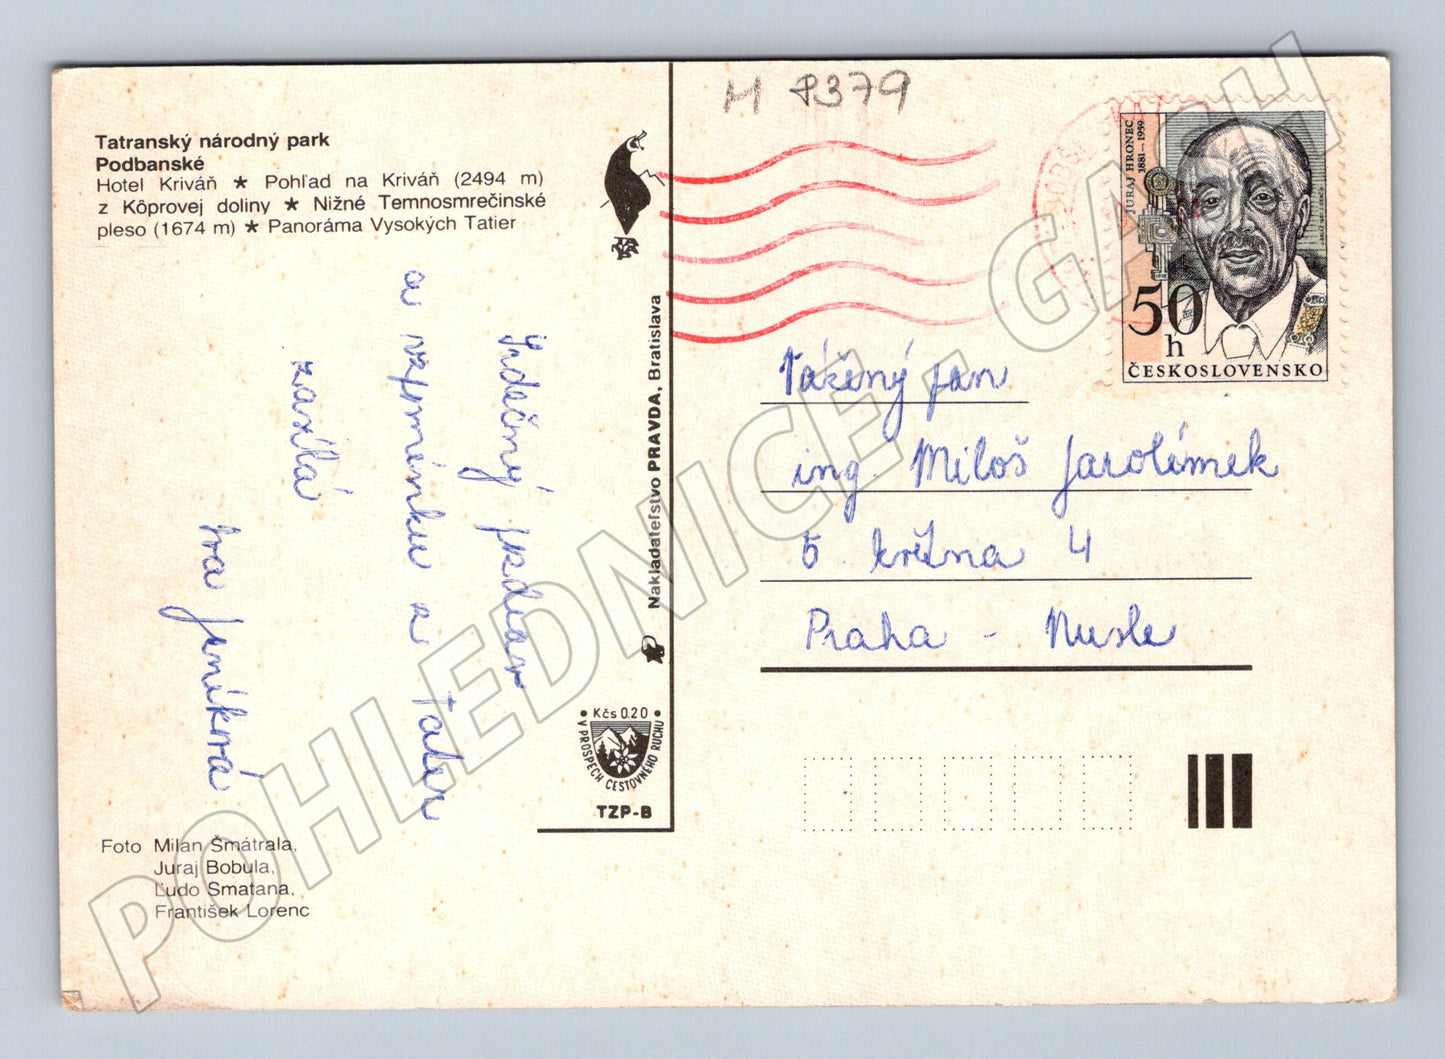 M 8379
Tatranský národný park
Podbanské
Hotel Kriváň ★ Pohľad na Kriváň (2494 m)
z Kôprovej doliny ★ Nižné Temnosmrečinské
pleso (1674 m) ★ Panoráma Vysokých Tatier
Srdečný pozdrav
a vzpomínku z Tater
zasílá
Iva Jeníková
Foto Milan Šmátrala,
Juraj Bobula,
Ľudo Smatana,
František Lorenc
Nakladateľstvo PRAVDA, Bratislava
• Kčs 0.20 •
V PROSPECH CESTOVNÉHO RUCHU
TZP-B
JURAJ HRONEC
1881–1959
50
h
ČESKOSLOVENSKO
Vážený pan
ing. Miloš Jarolímek
5. května 4
Praha - Nusle
POHLEDNICE - GASH